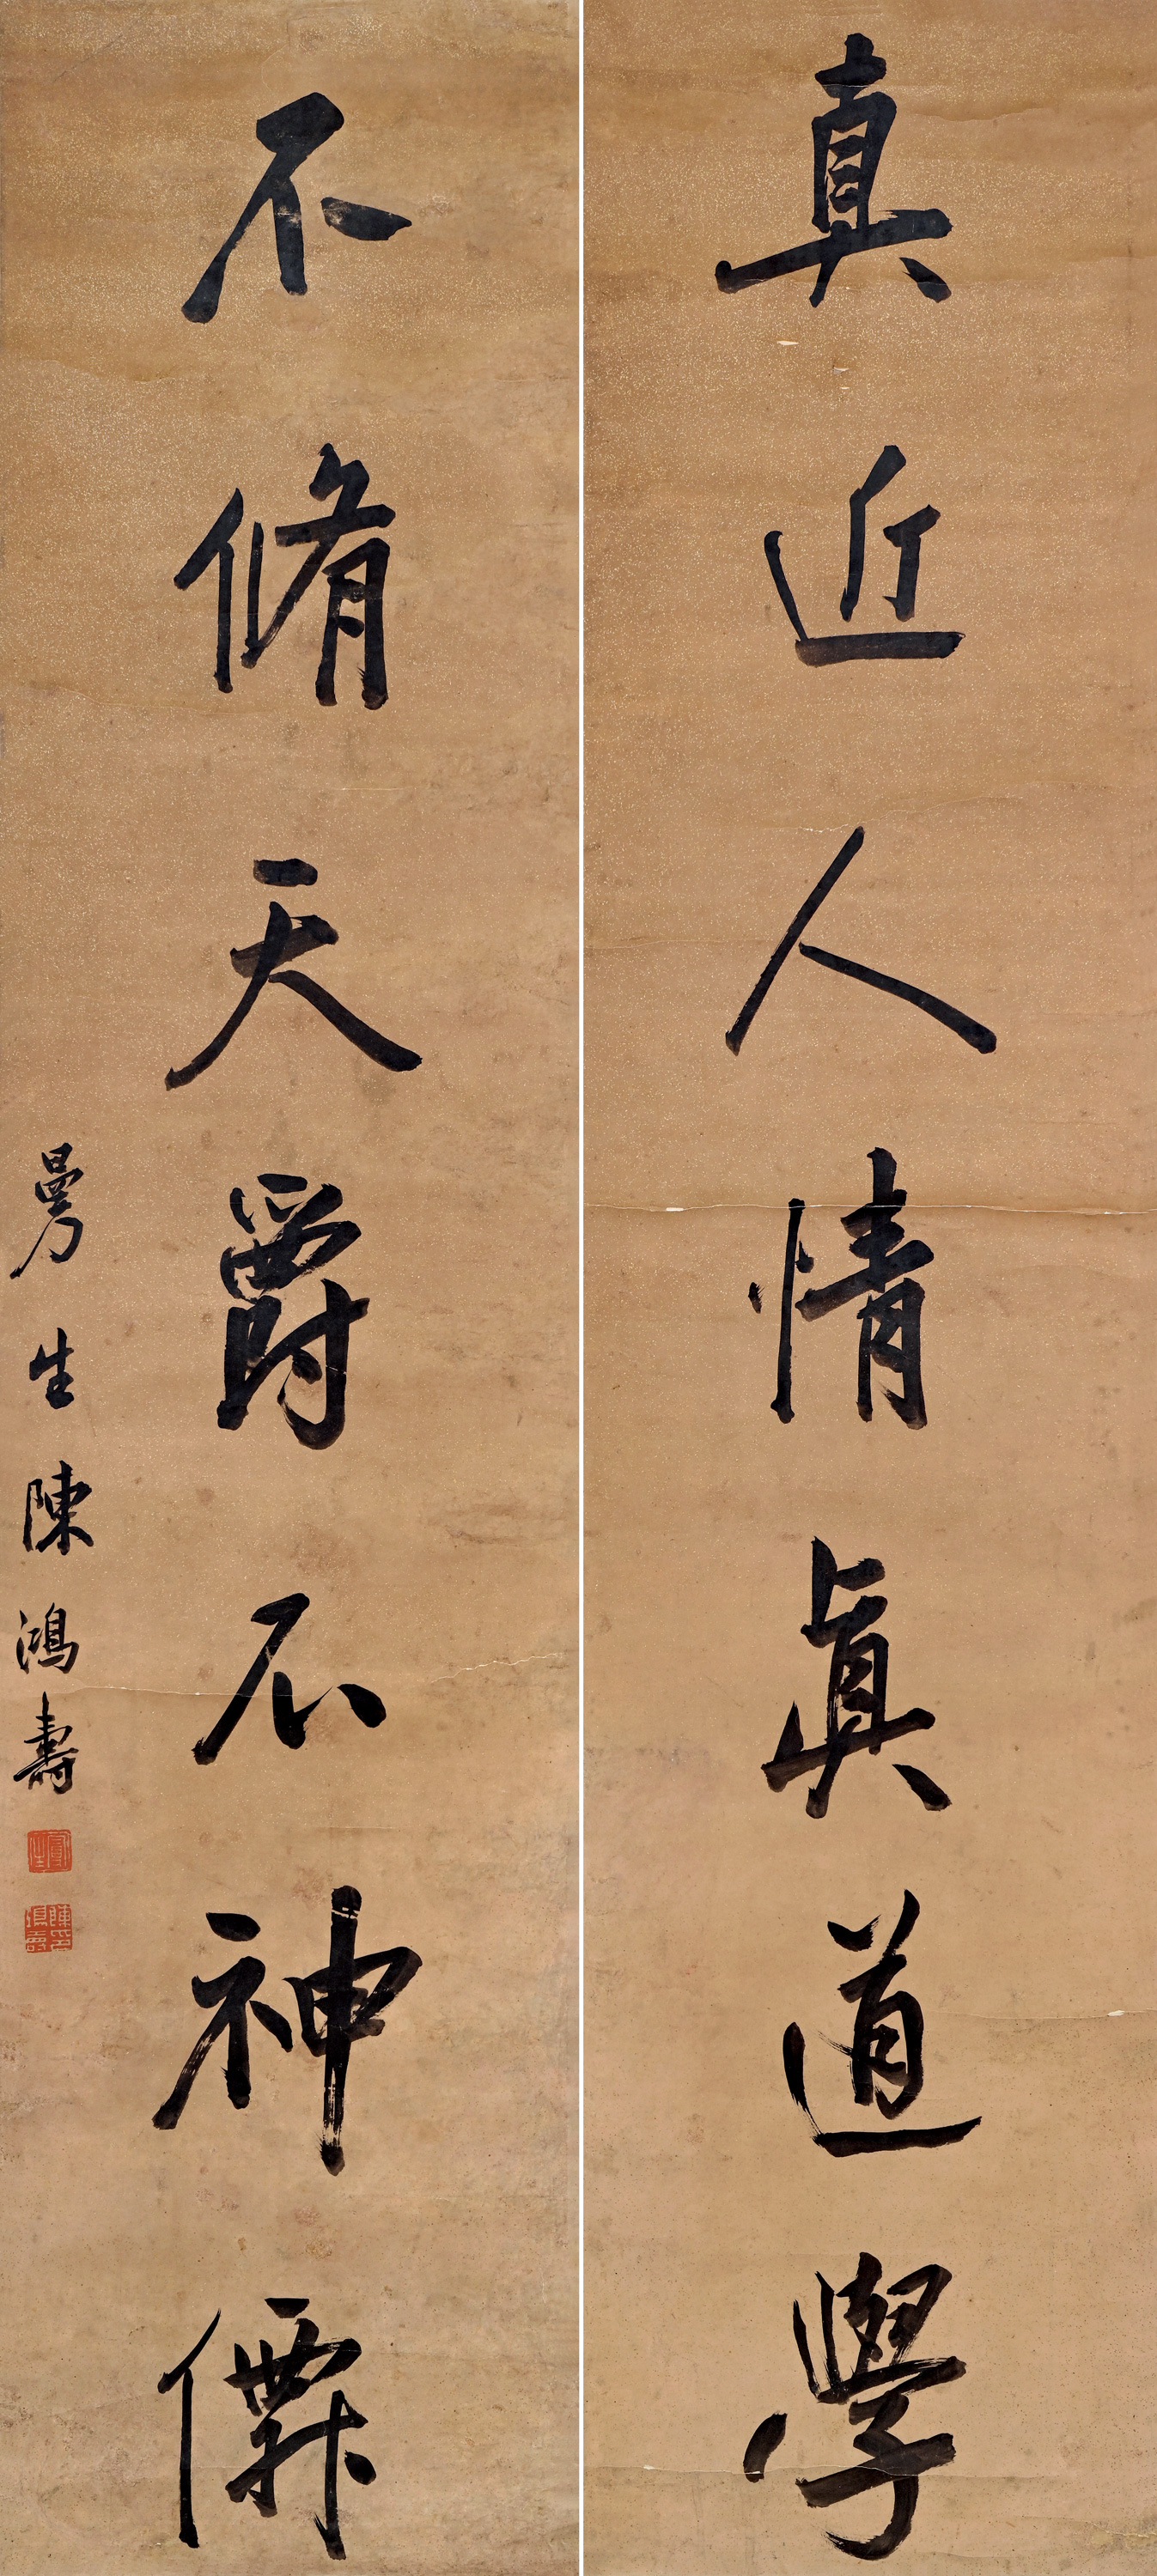 真近人情眞道學
不脩天爵不神僊
曼生陳鴻壽